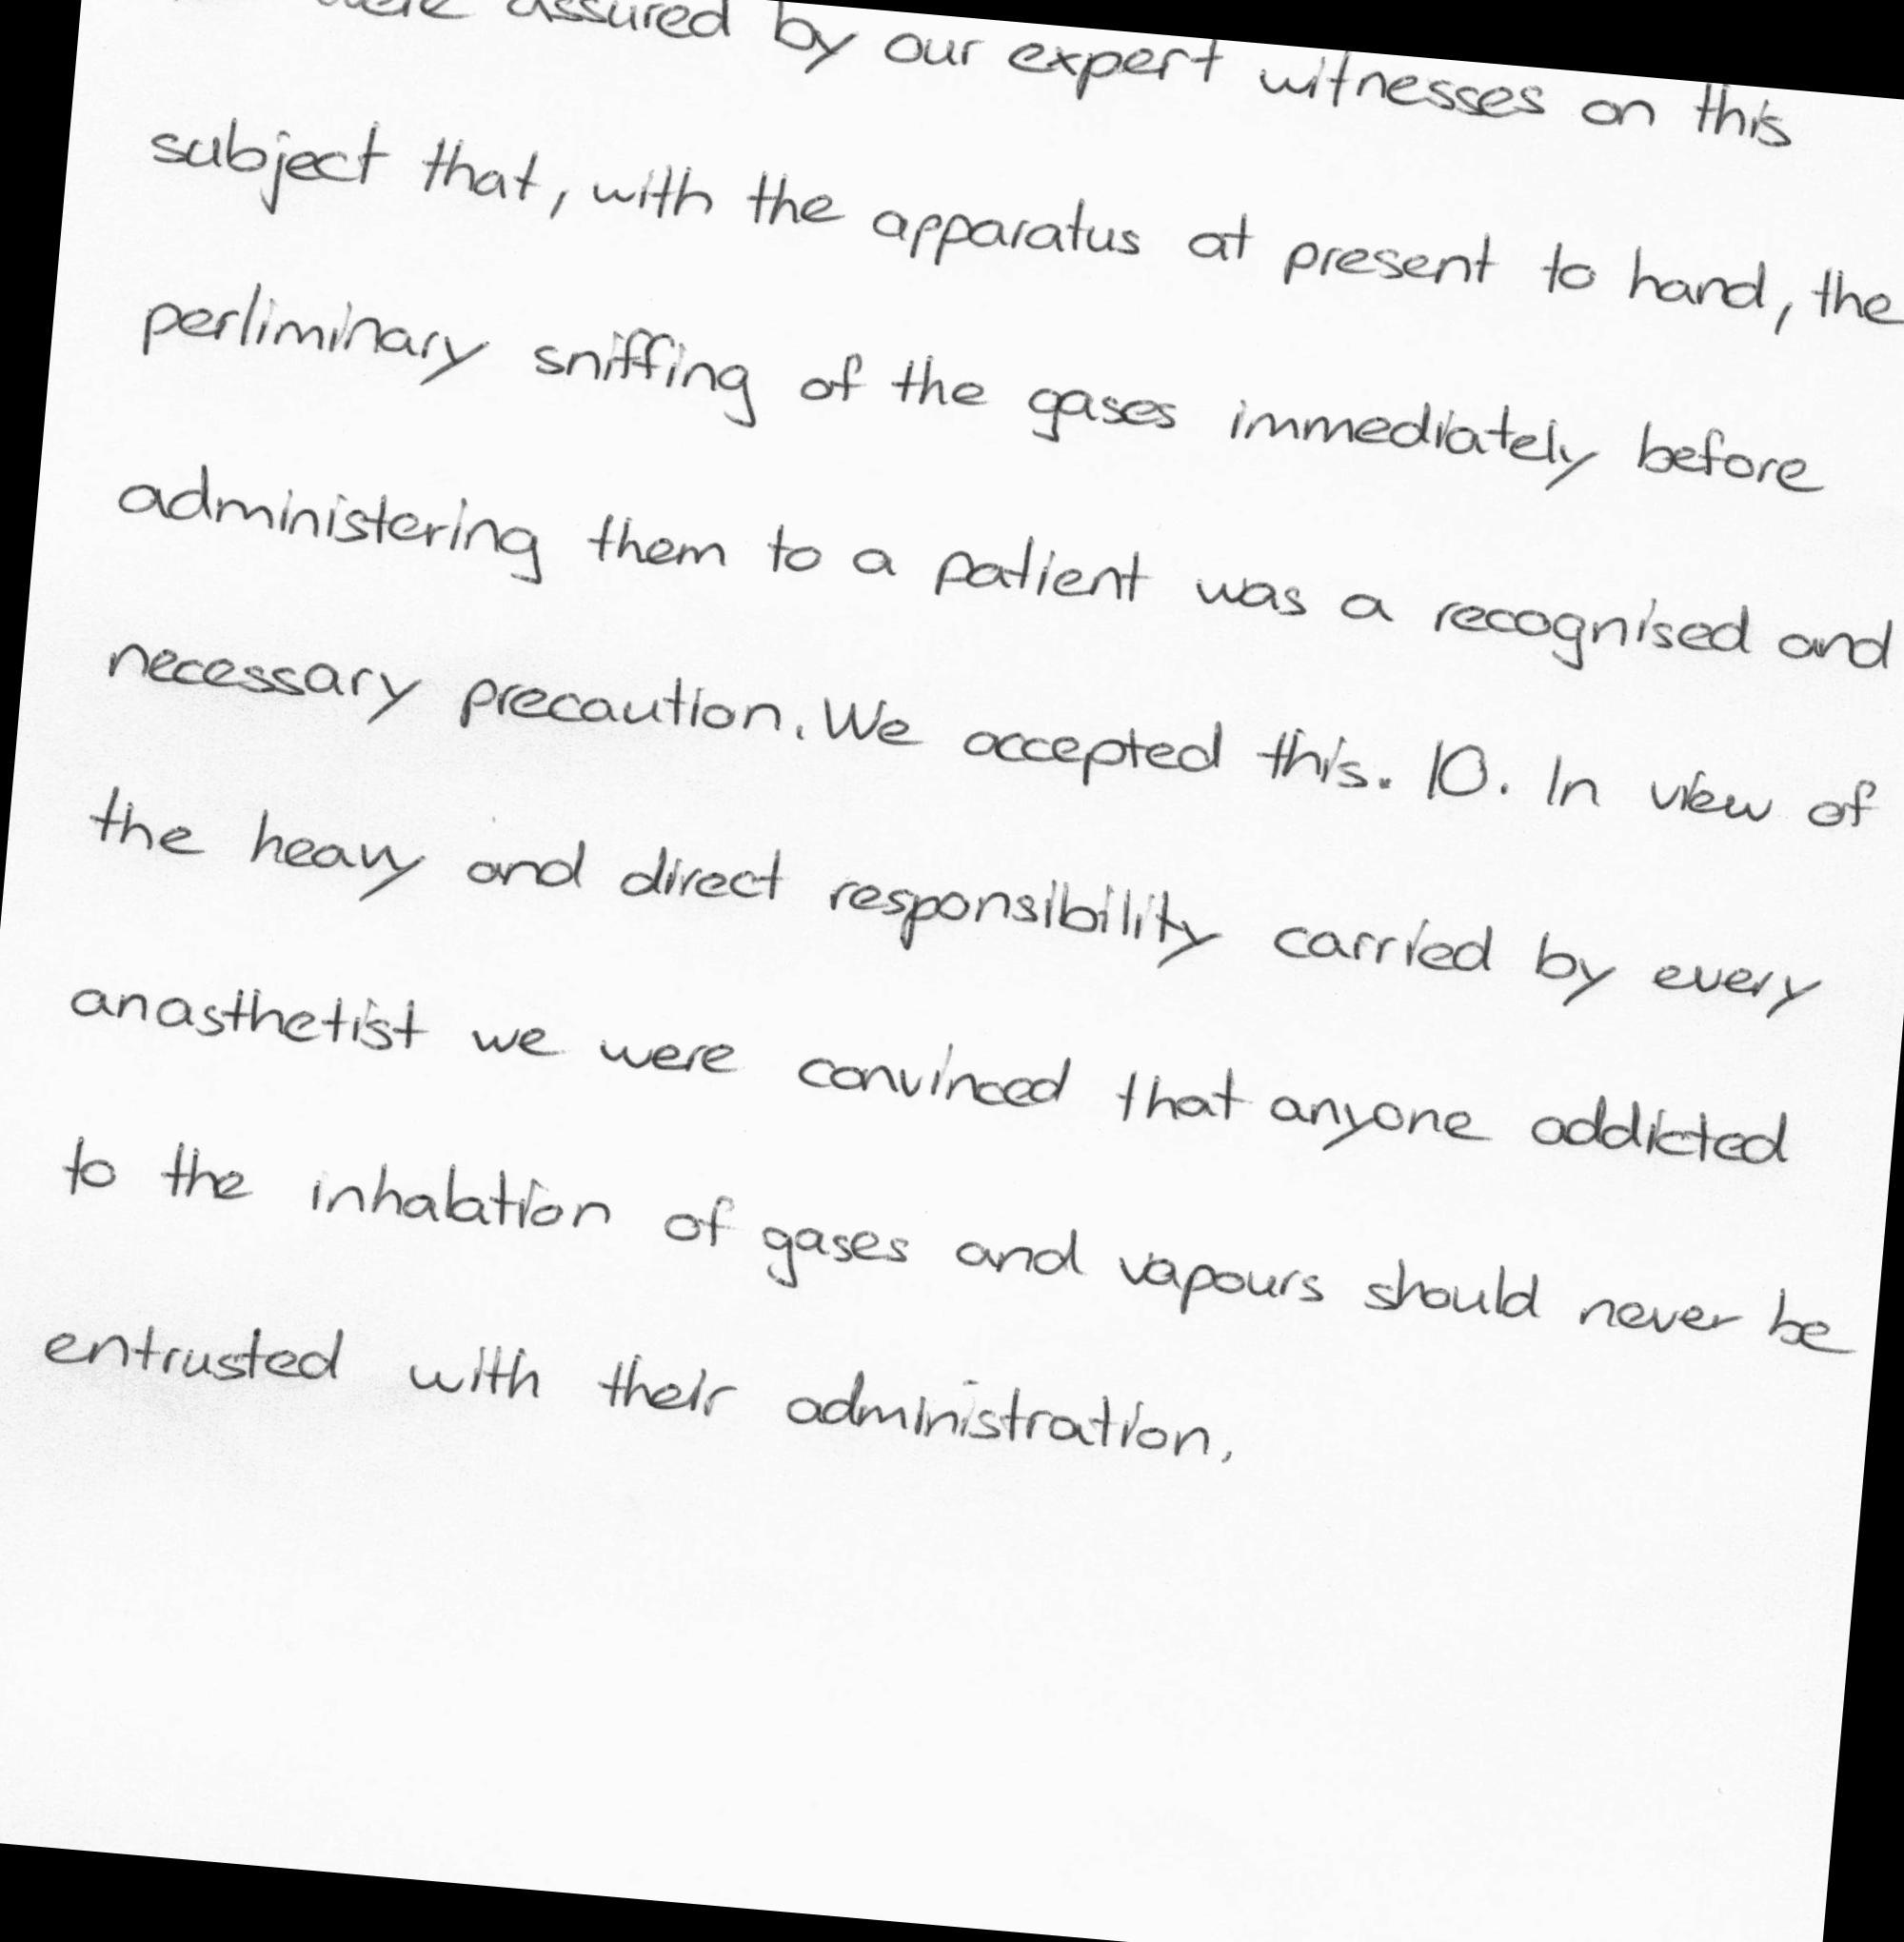 were assured by our expert witnesses on this
subject that, with the apparatus at present to hand, the
perliminary sniffing of the gases immediately before
administering them to a patient was a recognised and
necessary precaution. We accepted this. 10. In view of
the heavy and direct responsibility carried by every
anasthetist we were convinced that anyone addicted
to the inhalation of gases and vapours should never be
entrusted with their administration.